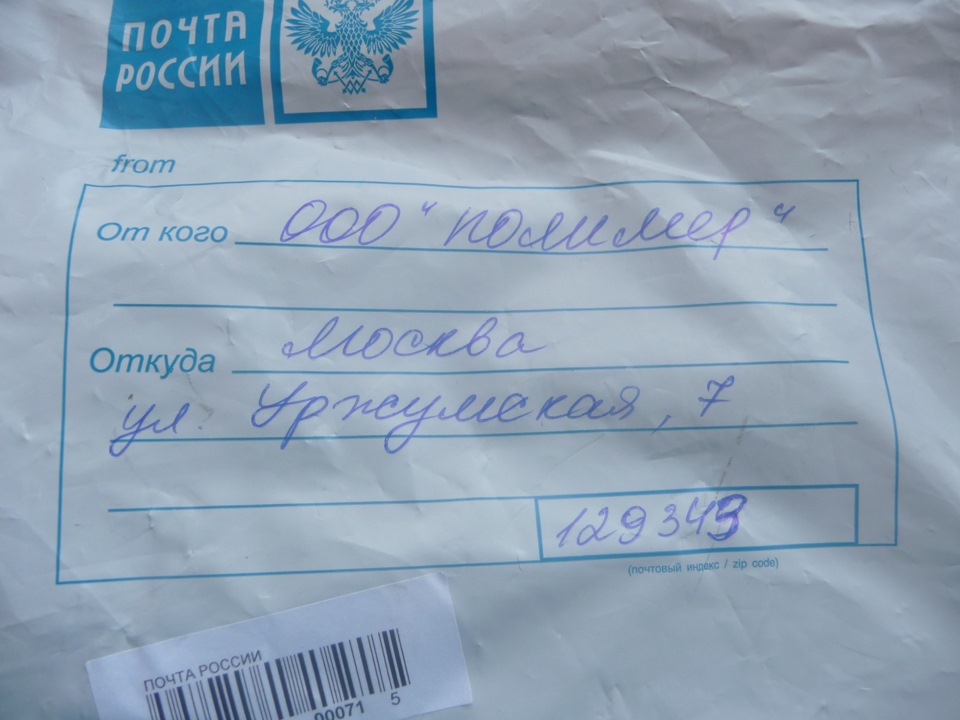 ПОЧТА
РОССИИ
from
От кого ООО "полимер"
Откуда Москва
ул. Уржумская, 7
129343
(почтовый индекс / zip code)
ПОЧТА РОССИИ
00071 5